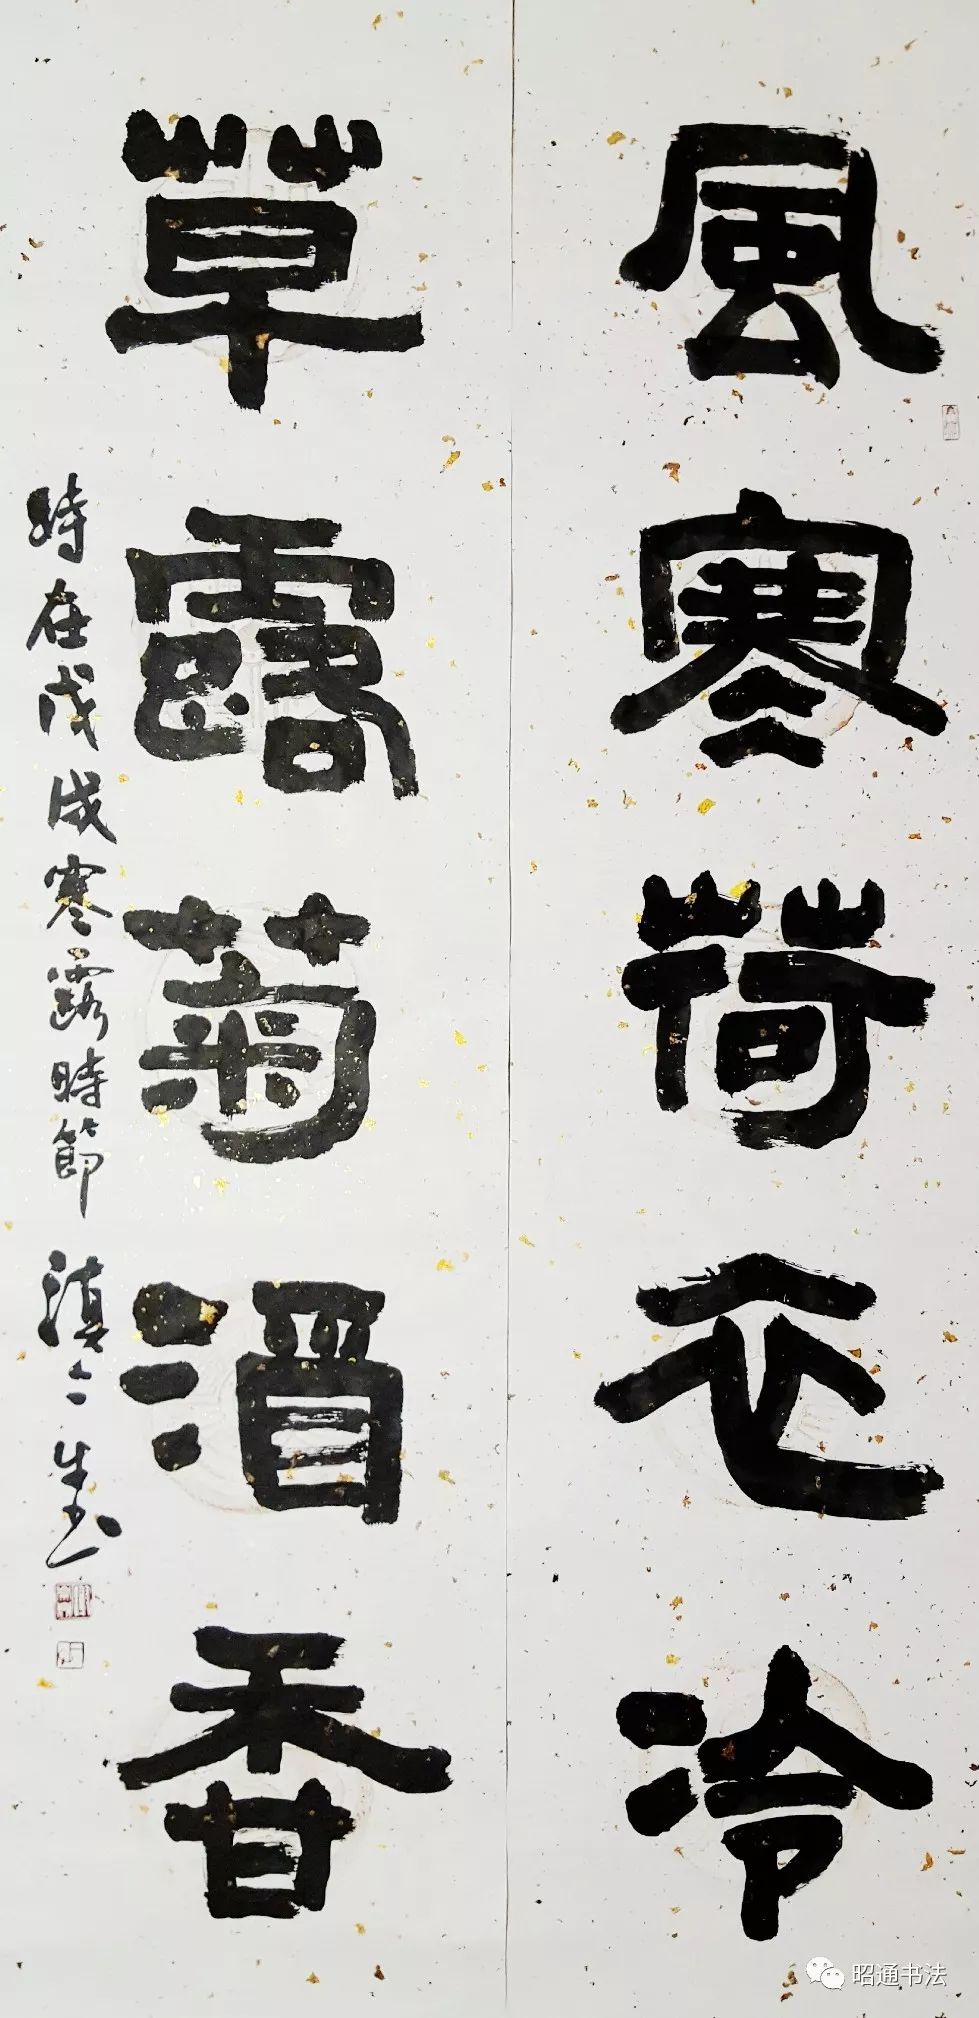 風寒荷衣冷
草露菊酒香
時在戊戌寒露時節
昭通书法